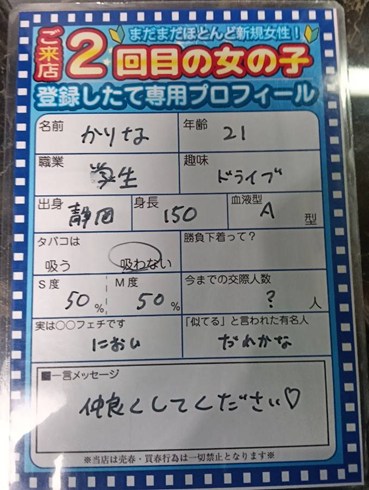 まだまだほとんど新規女性！
ご来店2回目の女の子
登録したて専用プロフィール
名前 かりな 年齢 21
職業 学生 趣味 ドライブ
出身 静岡 身長 150 血液型 A 型
タバコは 勝負下着って？
吸う 吸わない
S度 M度 今までの交際人数
50% 50% ? 人
実は○○フェチです 「似てる」と言われた有名人
におい だれかな
■一言メッセージ
仲良くしてください♡
※当店は売春・買春行為は一切禁止となります※